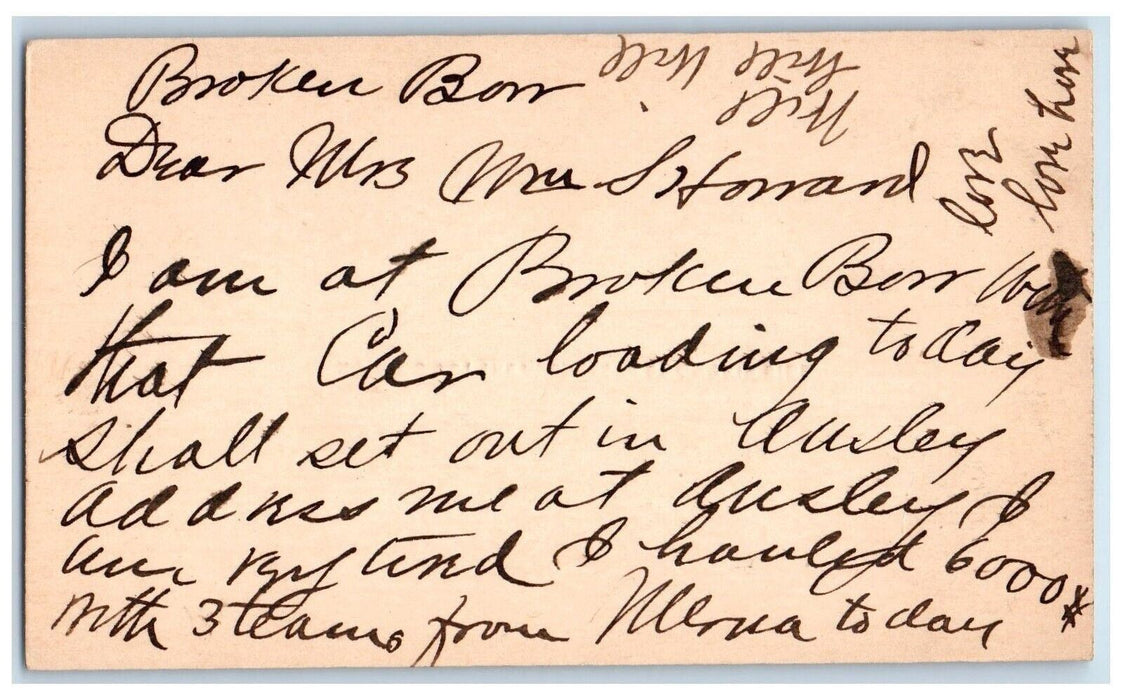 Broken Bow
Will Will
Will
Will
Dear Mrs Wm S Howard
love
love love
I am at Broken Bow
that Car loading today
Shall set out in Ansley
address me at Ansley I
am very tired I hauled 6000#
with 3 teams from Merna today